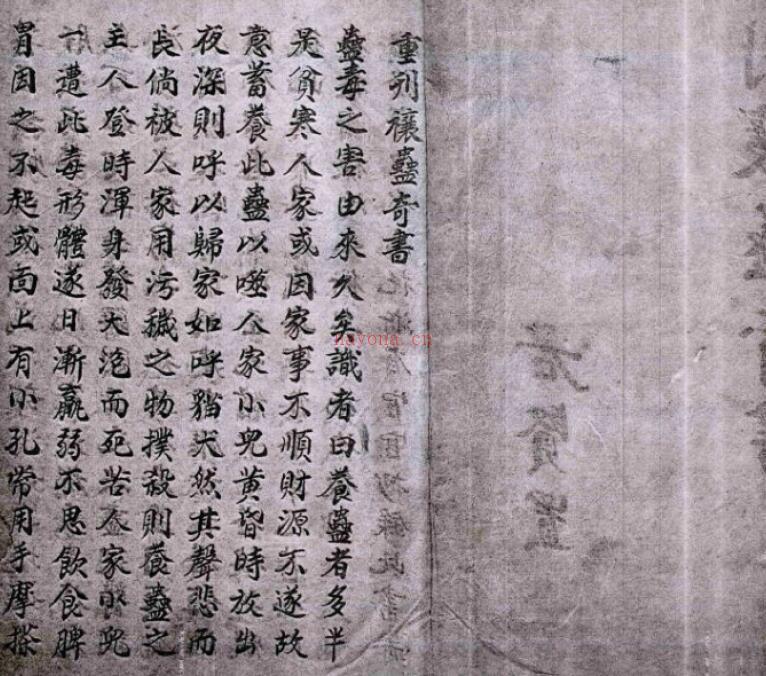 重刋禳蠱奇書
蠱毒之害由來久矣識者曰養蠱者多半
是貧寒人家或因家事不順財源不遂故
意蓄養此蠱以噬人家小兒黄昏時放出
夜深則呼以歸家如呼猫犬然其聲悲而
長倘被人家用污穢之物撲殺則養蠱之
主人登時渾身發大泡而死苦人家小兒
一遭此毒形體遂日漸羸弱不思飲食脾
胃因之不起或面上有小孔常用手摩搽
nayona.cn
賢置